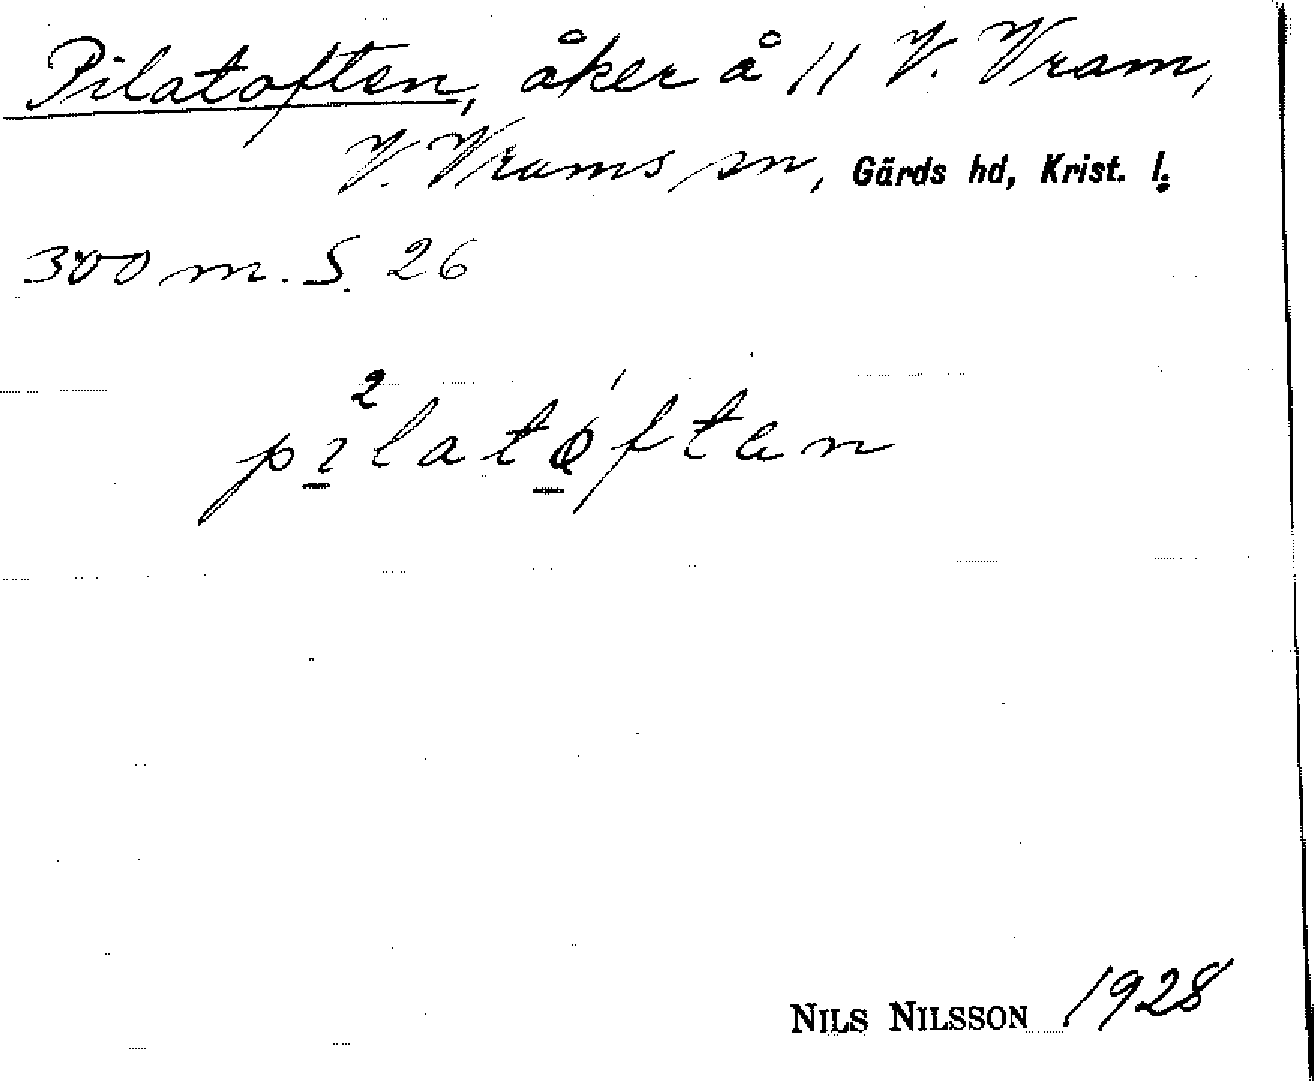 Pilatoften, åker å 11 V. Vram,
V. Vrams sn, Gärds hd, Krist. l.
300 m. S. 26
pi²latǫftan
NILS NILSSON 1928